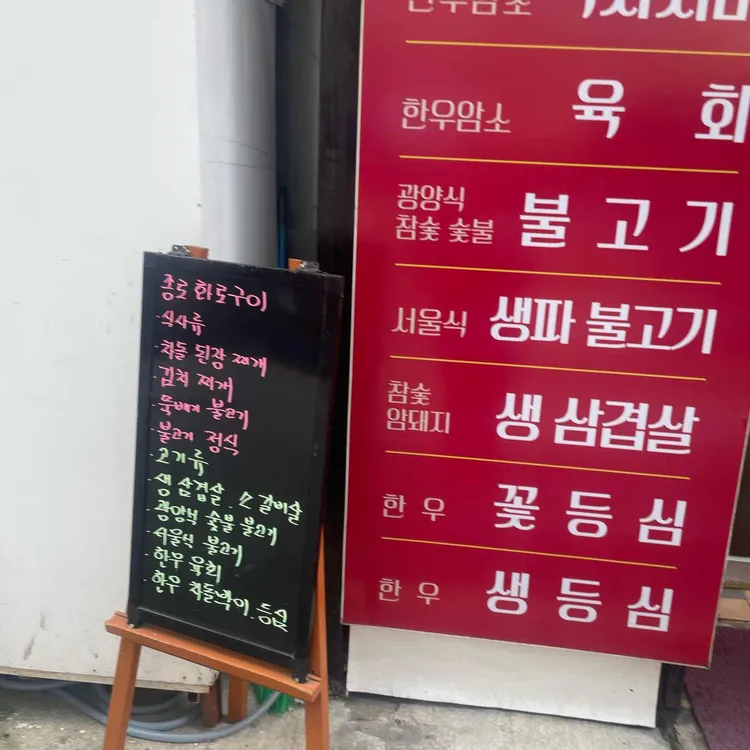 종로 화로구이
·식사류
·차돌 된장 찌개
·김치 찌개
·뚝배기 불고기
·불고기 정식
·고기류
·생삼겹살. 소갈비살
·광양식 숯불 불고기
·서울식 불고기
·한우 육회
·한우 차돌박이. 등심
한우암소
한우암소 육회
광양식 참숯 숯불 불고기
서울식 생파 불고기
참숯 암돼지 생 삼겹살
한우 꽃등심
한우 생등심